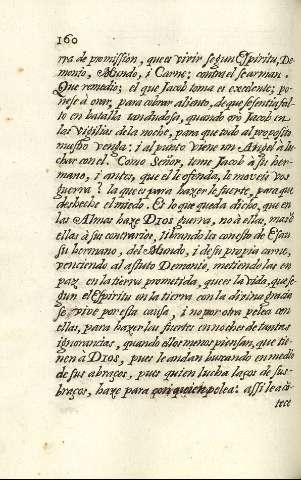 160
rra de promission, que es vivir segun Espiritu, De-
monio, Mundo, i Carne; contra el se arman.
Que remedio; el que Jacob toma es excelente; po-
nese à orar, para cobrar aliento, de que se sentia fal-
to en batalla tan dudosa, quando orò Jacob en
las vigilias de la noche, para que todo al proposito
nuestro venga; i al punto viene un Angel à lu-
char con el. Como Señor, teme Jacob à su her-
mano, i antes, que el le ofenda, le moveis vos
guerra? la que es para hazerle fuerte, para que
desheche el miedo. Es lo que queda dicho, que en
las Almas haze DIOS guerra, no à ellas, mas
ellas à sus contrarios, librando la con esto de Esau
su hermano, del Mundo, i de su propia carne,
venciendo al astuto Demonio, metiendo las en
paz en la tierra prometida, que es la vida, que se-
gun el Espiritu en la tierra con la divina gracia
se vive por esta causa, i no por otra pelea con
ellas, para hazerlas fuertes en noche de tantas
ignorancias, quando ellos menos piensan, que tie-
nen à DIOS, pues le andan buscando en medio
de sus abraços, pues quien lucha laços de sus
braços, haze para con quien pelea: assi le a
tece